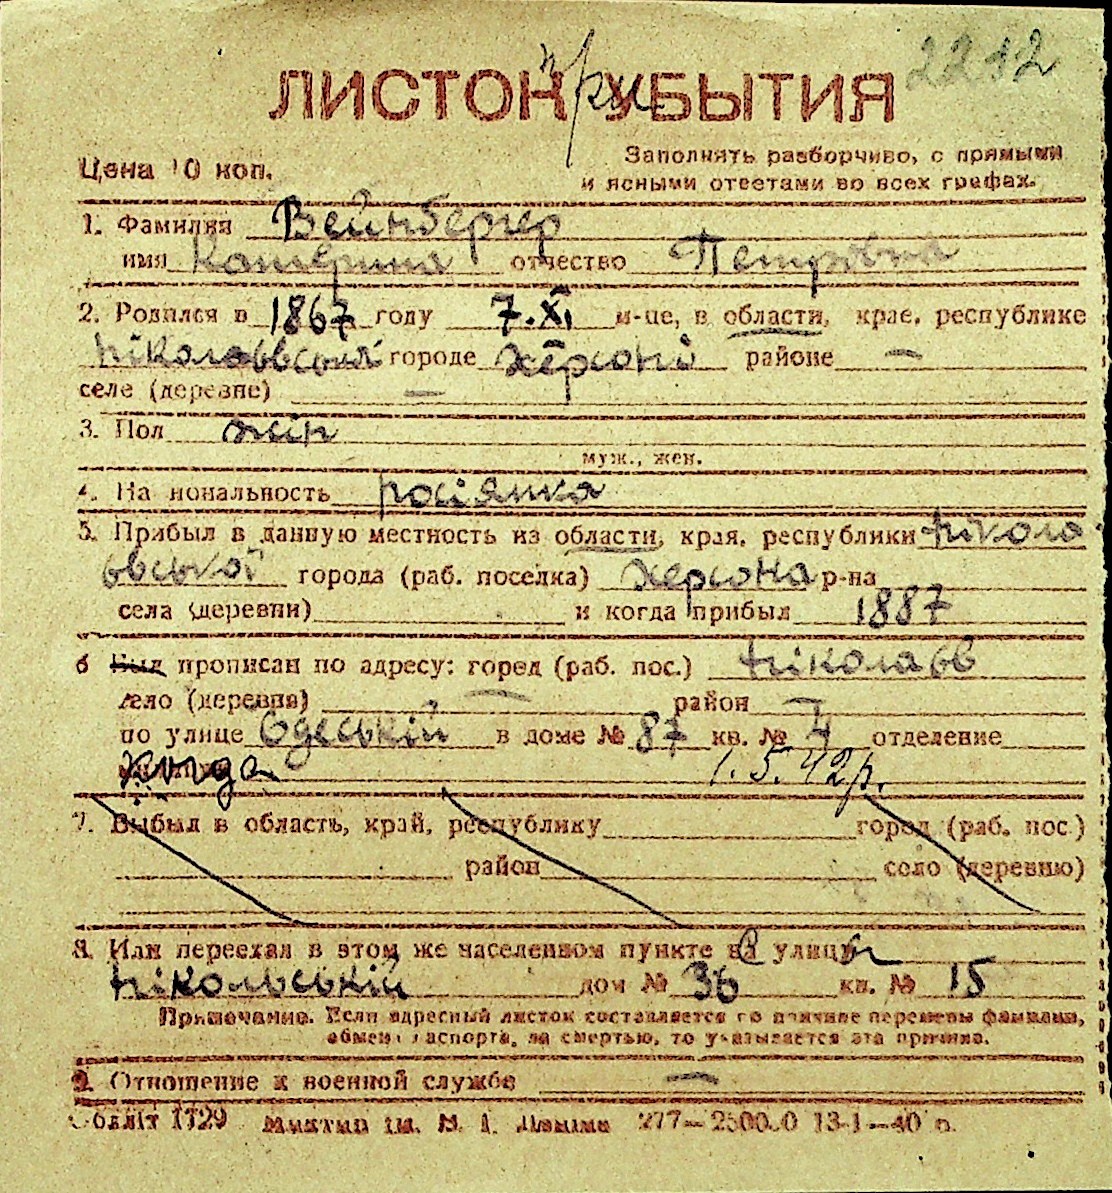 2212
ЛИСТОК при УБЫТИЯ
Цена 10 коп.
Заполнять разборчиво, с прямыми
и ясными ответами во всех графах.
1. Фамилия Вейнбергер
имя Катерина отчество Петровна
2. Родился в 1867 году 7.XI м-це, в области, крае, республике
Ніколаєвській городе Херсоні районе —
селе (деревне) —
3. Пол жін
муж., жен.
4. На иональность росіянка
5. Прибыл в данную местность из области, края, республики Нікола
євської города (раб. поселка) Херсона р-на
села (деревни) и когда прибыл 1887
6 Был прописан по адресу: город (раб. пос.) Ніколаєв
село (деревня) — район —
по улице Одеській в доме № 87 кв. № 4 отделение
1.5.42р.
7. Выбыл в область, край, республику город (раб. пос.)
район село (деревню)
8. Или переехал в этом же населенном пункте на улицу
Нікольській дом № 36 кв. № 15
Примечание. Если адресный листок составляется по причине перемены фамилии,
обмена паспорта, за смертью, то указывается эта причина.
9. Отношение к военной службе —
Обллiт 1129 277—25000.0 13-1—40 р.